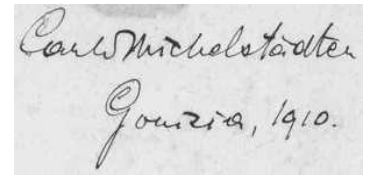 Carlo Michelstädter
Gorizia, 1910.